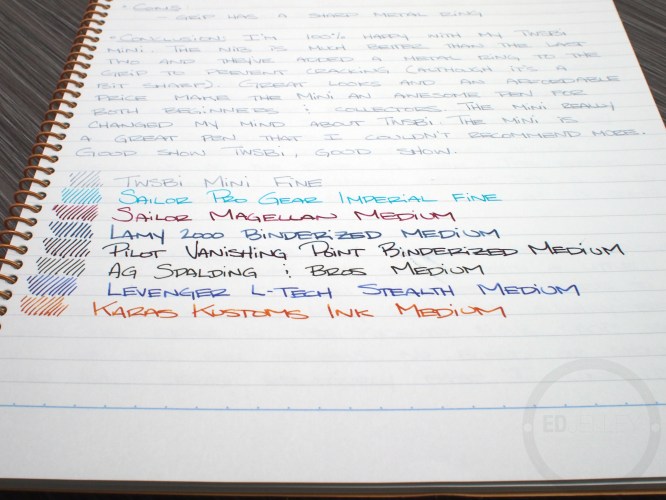 • Cons:
- Grip has a sharp metal ring
• Conclusion: I'm 100% happy with my TWSBI
Mini. The nib is much better than the last
two and they've added a metal ring to the
grip to prevent cracking (although it's a
bit sharp). Great looks and an affordable
price make the Mini an awesome pen for
both beginners & collectors. The Mini really
changed my mind about TWSBI. The Mini is
a great pen that I couldn't recommend more.
Good show TWSBI, good show.
TWSBI Mini Fine
Sailor Pro Gear Imperial Fine
Sailor Magellan Medium
Lamy 2000 Binderized Medium
Pilot Vanishing Point Binderized Medium
AG Spalding & Bros Medium
Levenger L-Tech Stealth Medium
Karas Kustoms Ink Medium